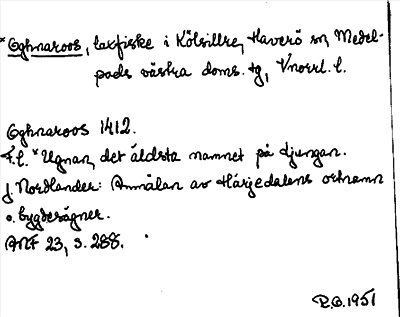 *Oghnaroos, laxfiske i Kölsillre, Haverö sn, Medel-
pads västra doms. tg, Vnorrl. l.
Oghnaroos 1412.
F.l. *Ugnan, det äldsta namnet på Ljungan.
J. Nordlander: Anmälan av Härjedalens ortnamn
o. bygdesägner.
ANF 23, s. 288.
R.O. 1951